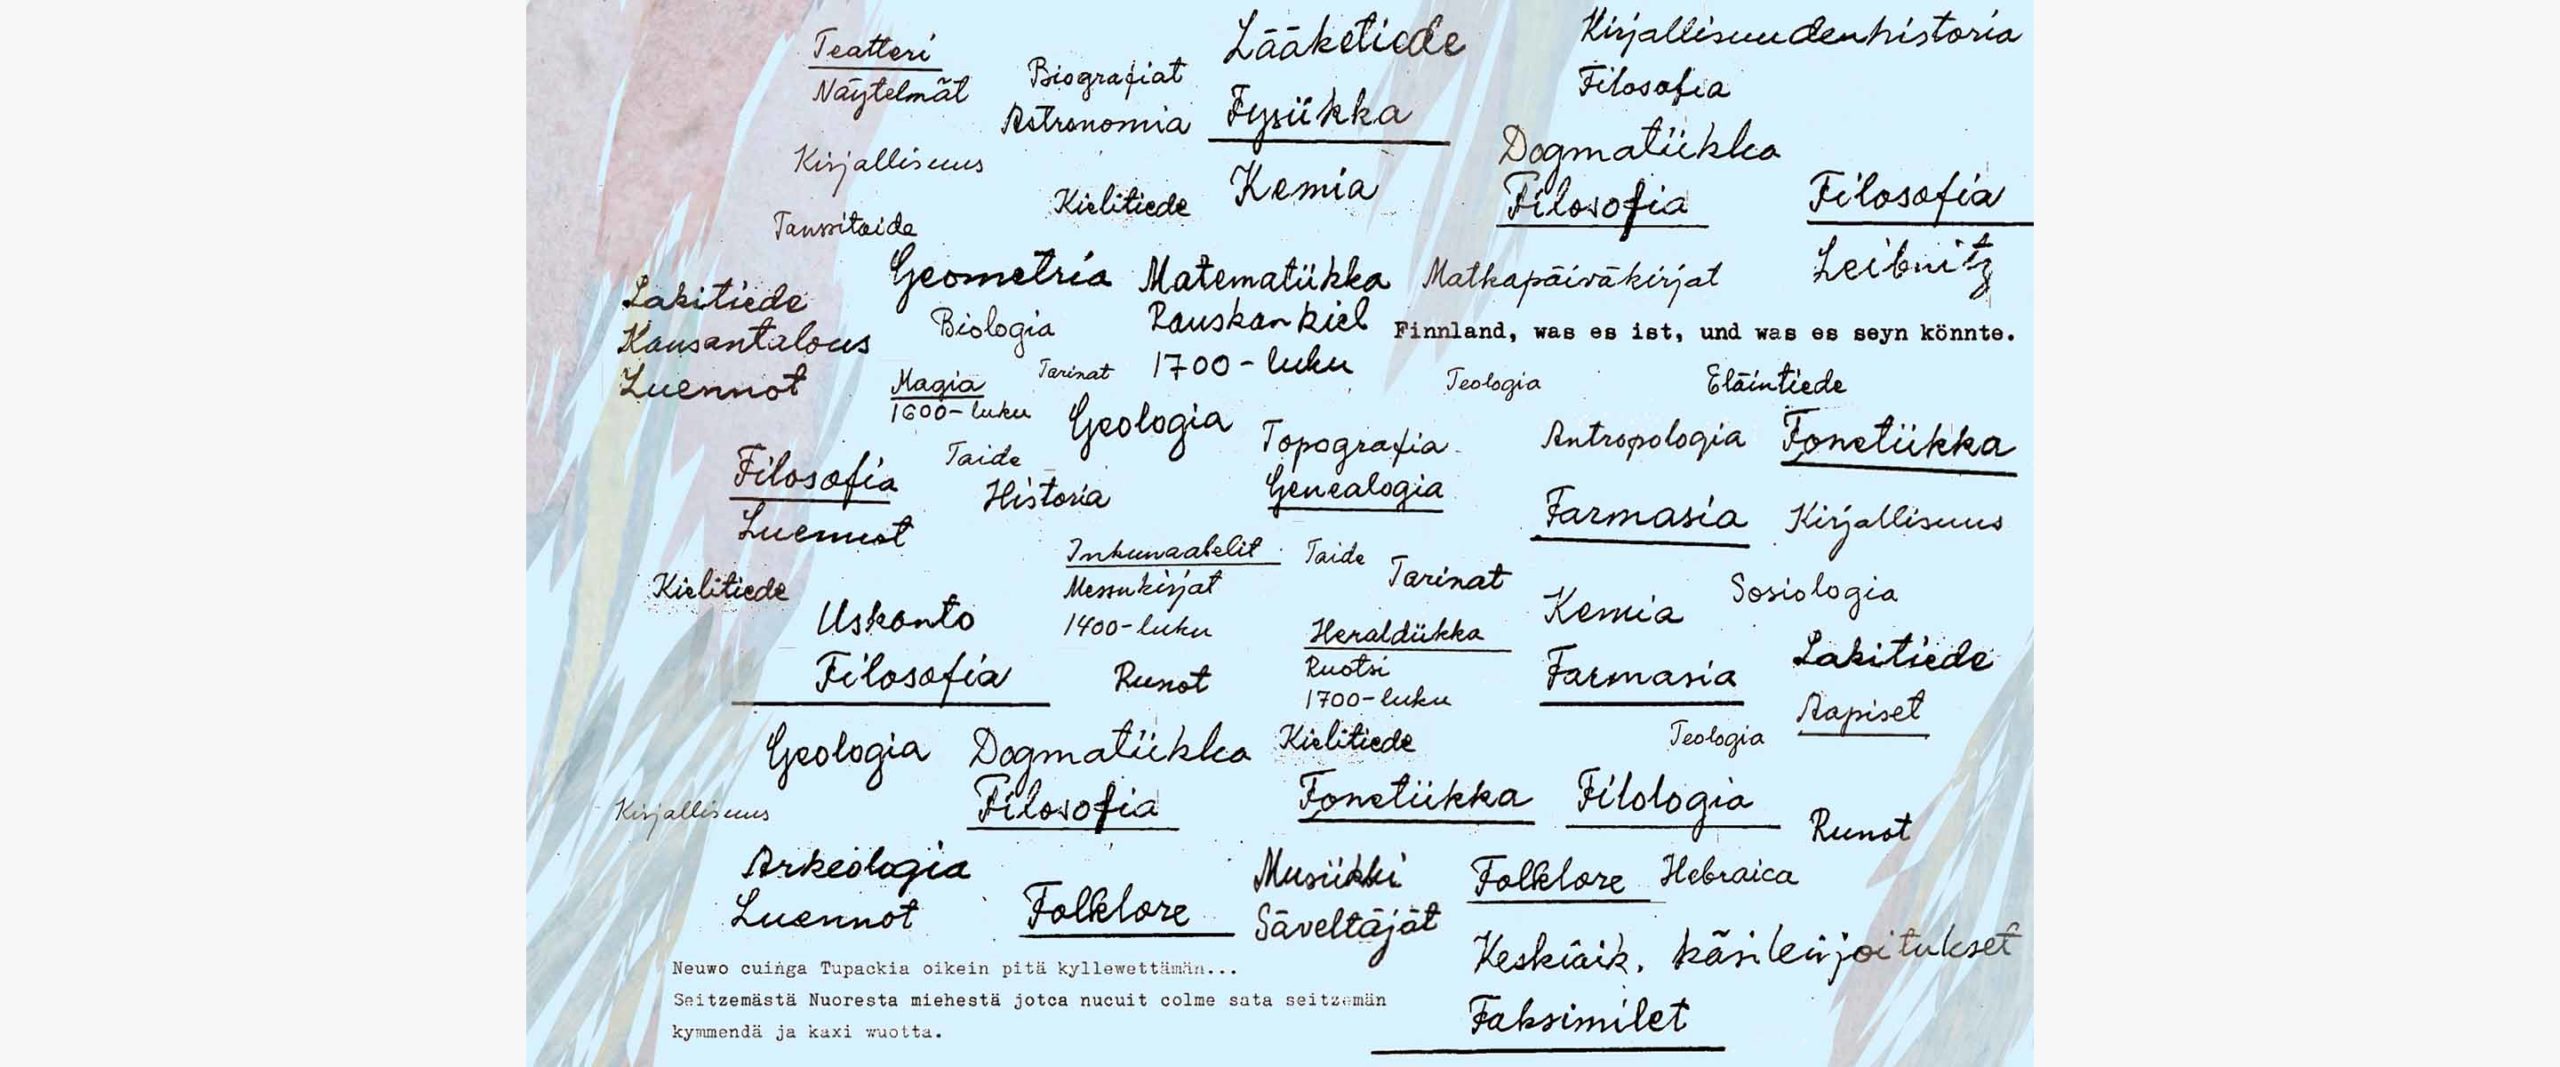 Teatteri
Näytelmät
Biografiat
Astronomia
Lääketiede
Fysiikka
Kemia
Kirjallisuudenhistoria
Filosofia
Dogmatiikka
Filosofia
Filosofia
Leibnitz
Kirjallisuus
Kielitiede
Tanssitaide
Geometria
Matematiikka
Matkapäiväkirjat
Lakitiede
Kansantalous
Luennot
Biologia
Ranskan kiel
1700-luku
Finnland, was es ist, und was es seyn könnte.
Magia
1600-luku
Tarinat
Teologia
Eläintiede
Geologia
Topografia
Genealogia
Antropologia
Fonetiikka
Filosofia
Luennot
Taide
Historia
Farmasia
Kirjallisuus
Inkunaabelit
Messukirjat
1400-luku
Taide
Tarinat
Kielitiede
Uskonto
Filosofia
Runot
Heraldiikka
Ruotsi
1700-luku
Kemia
Farmasia
Sosiologia
Lakitiede
Aapiset
Geologia
Dogmatiikka
Filosofia
Kielitiede
Teologia
Fonetiikka
Filologia
Kirjallisuus
Runot
Arkeologia
Luennot
Folklore
Musiikki
Säveltäjät
Folklore
Hebraica
Keskiaik. käsikirjoitukset
Faksimilet
Neuwo cuinga Tupackia oikein pitä kyllewettämän...
Seitzemästä Nuoresta miehestä jotca nucuit colme sata seitzemän
kymmendä ja kaxi wuotta.